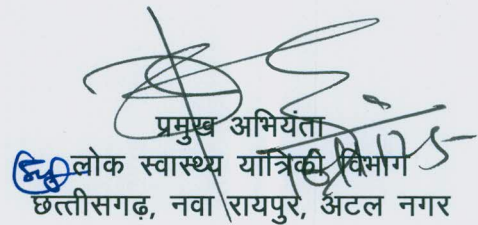 प्रमुख अभियंता
लोक स्वास्थ्य यांत्रिकी विभाग
छत्तीसगढ़, नवा रायपुर, अटल नगर